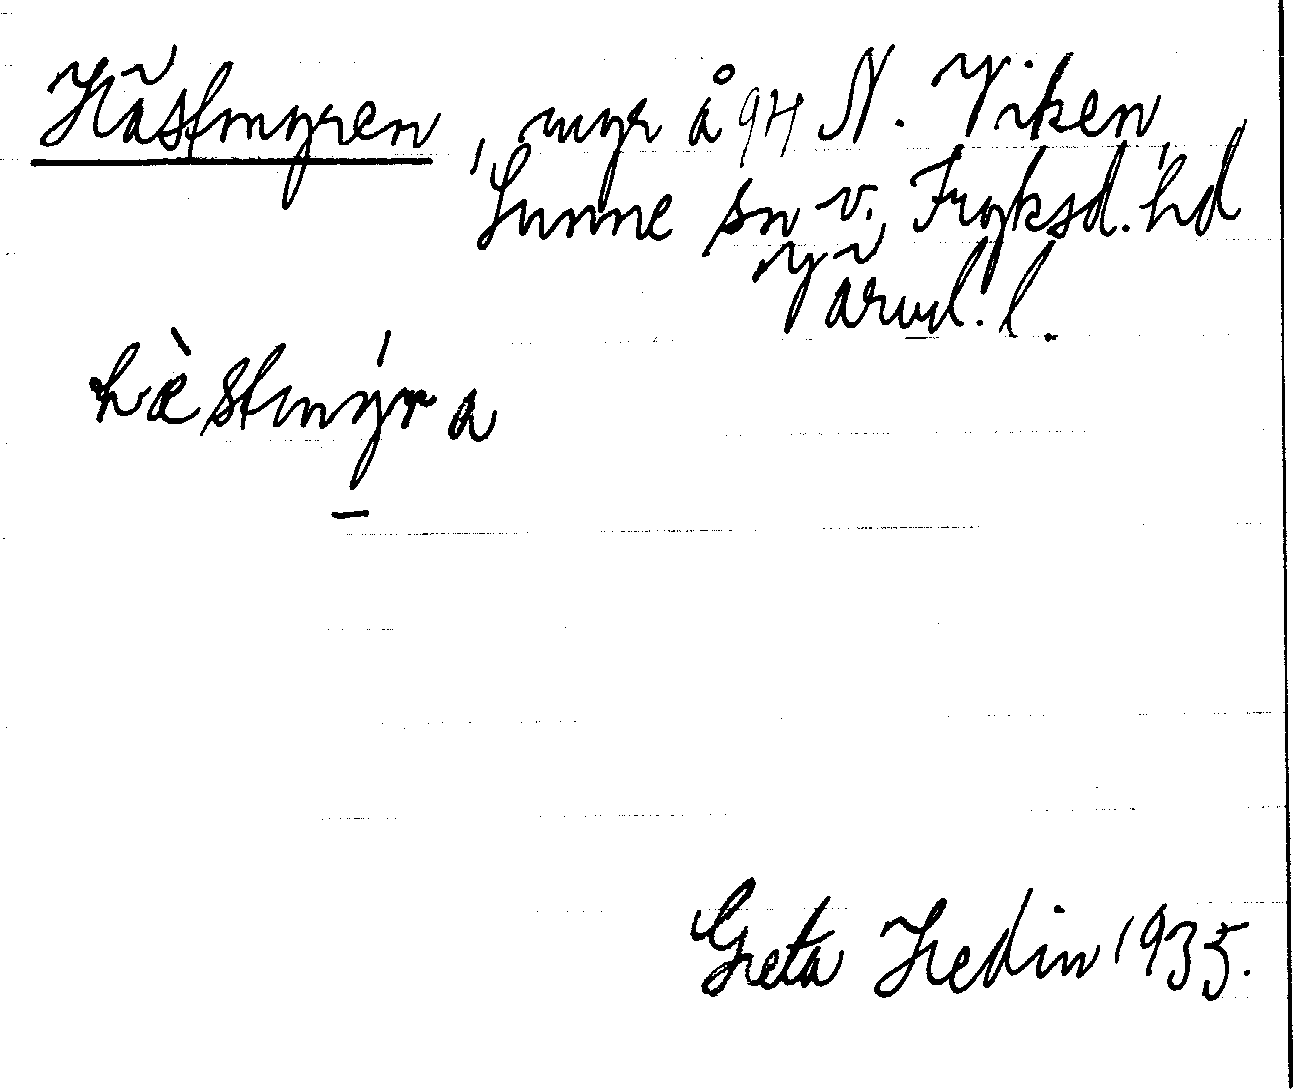 Hästmyren, myr å 94 N. Viken,
Sunne sn v. Fryksd. hd
Värml. l.
hæ̀stmýra
Greta Hedin 1935.